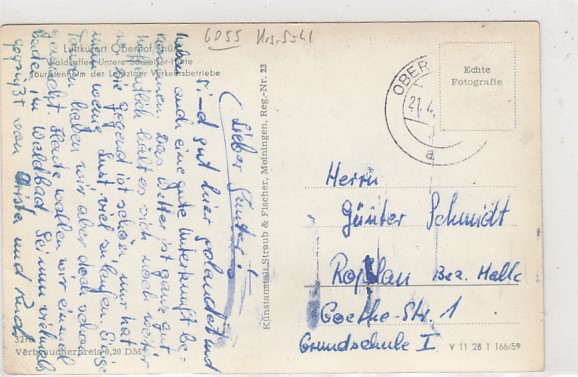 6055 Krs. Suhl
Luftkurort Oberhof/Thür.
Waldkaffee Untere Schweizer-Hütte
Touristenheim der Leipziger Verkehrsbetriebe
Lieber Günter!
Sind gut hier gelandet und
haben auch eine gute Unterkunft be-
kommen. Das Wetter ist ganz gut,
hoffentlich hält es sich noch weiter
so. Die Gegend ist schön, nur hat
man wenig Lust viel zu laufen. Einige
Touren haben wir aber doch schon
gemacht. Heute wollen wir einmal
baden im Waldbad. Sei nun vielmals
gegrüßt von Christa und Rudi
Kunstanstalt Straub & Fischer, Meiningen, Reg.-Nr. 23
OBER
a
Echte
Fotografie
Herrn
Günter Schmidt
Roßlau Bez. Halle
Goethe-Str. 1
Grundschule I
Verbraucherpreis 0,20 DM
V 11 28 T 166/59